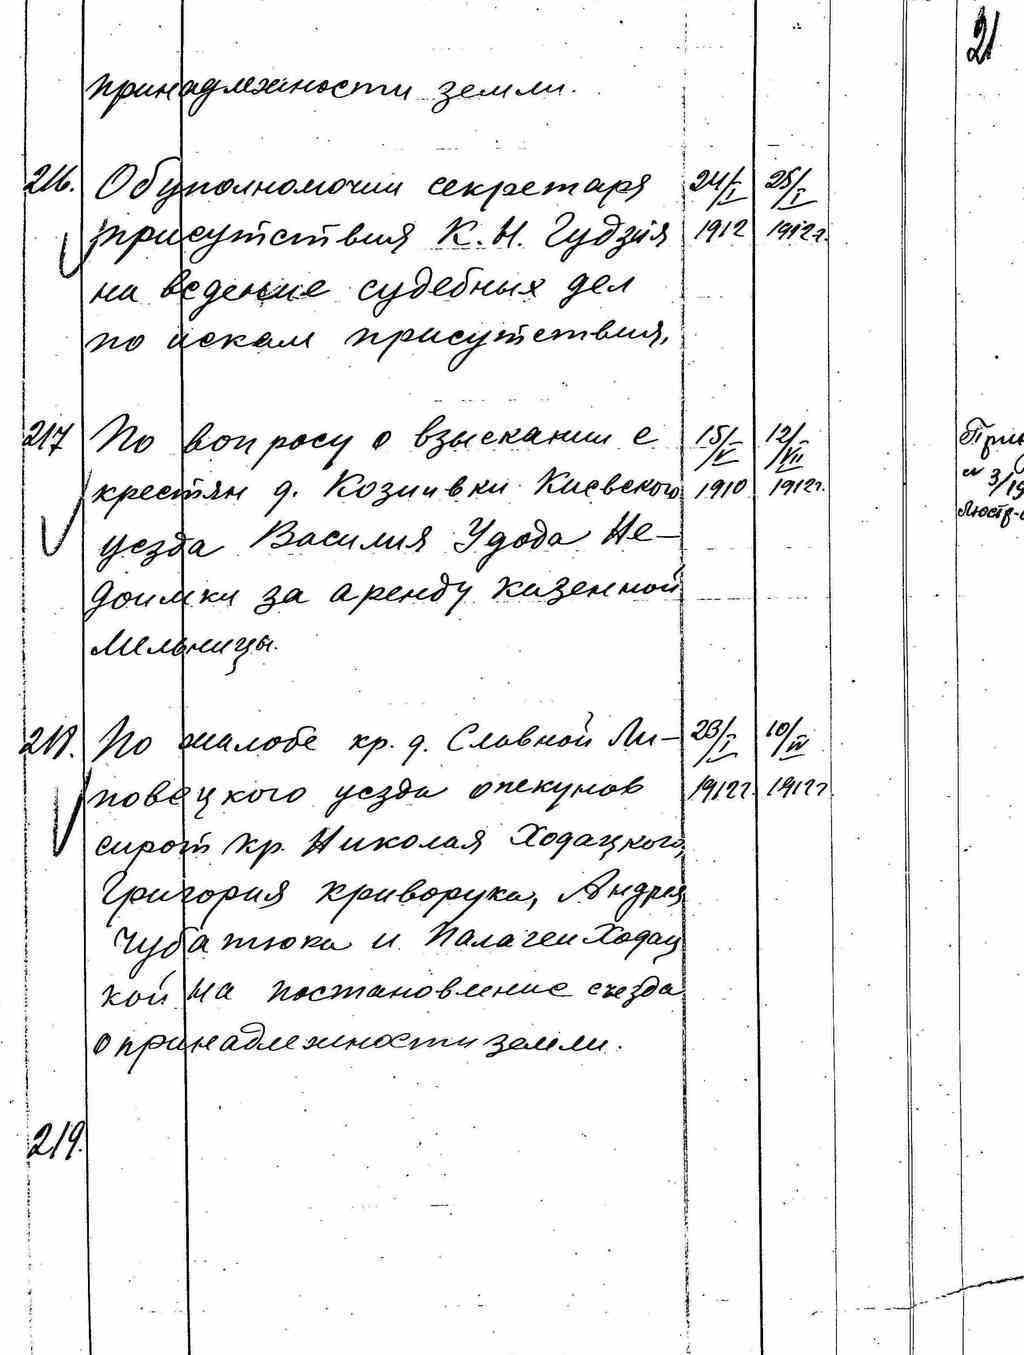 21
принадлежности земли.
216. Об уполномочии секретаря 24/I 25/I
присутствия К. Н. Гудзия 1912 1912 г.
на ведение судебных дел
по искам присутствия.
217 По вопросу о взыскании с 15/V 12/VII
крестян д. Козиивки Киевского 1910 1912 г.
уезда Василия Удода Не-
доимки за аренду казенной
мельницы.
218. По жалобе кр. д. Славной Ли- 23/I 10/IV
повецкого уезда опекунов 1912 г. 1912 г.
сирот кр. Николая Ходацкого,
Григория Криворука, Андрея
Чубатюка и Палагеи Ходац
кой на постановление съезда
о принадлежности земли.
219.